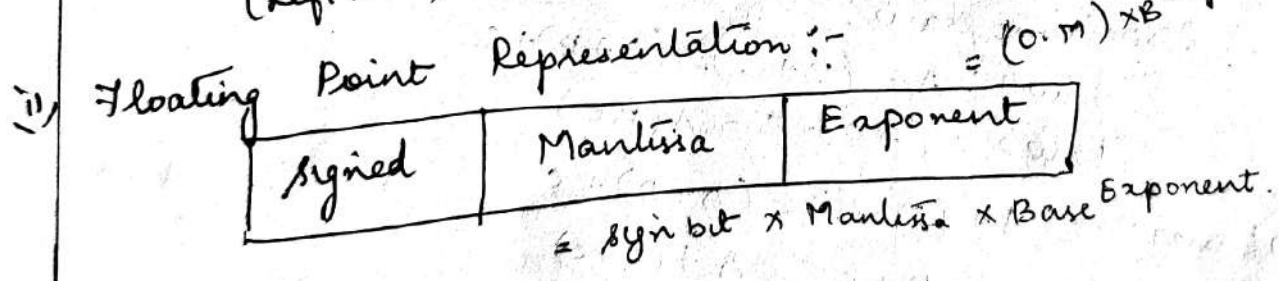 ii) Floating Point Representation :- = (0.M) × B
signed Mantissa Exponent
= sign bit × Mantissa × Base Exponent.